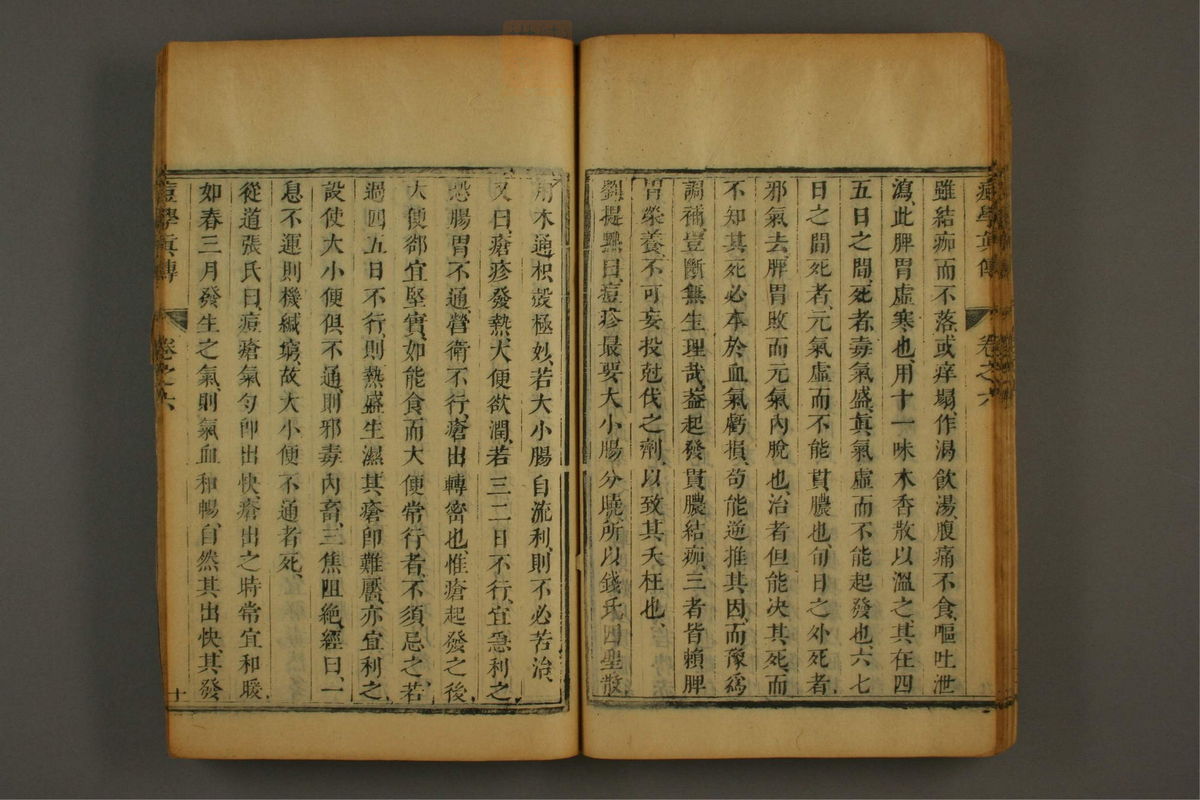 痘學真傳 卷之六
雖結痂而不落、或痒塌、作渴飲湯、腹痛不食、嘔吐泄
瀉、此脾胃虛寒也、用十一味木香散以溫之、其在四
五日之間、死者、毒氣盛、眞氣虛而不能起發也、六七
日之間死者、元氣虛而不能貫膿也、旬日之外死者
邪氣去、脾胃敗而元氣內脫也、治者但能决其死、而
不知其死必本於血氣虧損、苟能逆推其因、而豫爲
調補、豈斷無生理哉、葢起發貫膿結痂、三者皆賴脾
胃榮養、不可妄投尅伐之劑、以致其夭枉也、
劉提舉曰、痘疹最要大小腸分曉、所以錢氏四聖散
用木通枳殼極妙、若大小腸自流利、則不必苦治、
又曰、瘡疹發熱、大便欲潤、若三二日不行、宜急利之
恐腸胃不通、營衛不行、瘡出轉密也、惟瘡起發之後、
大便却宜堅實、如能食而大便常行者、不須忌之、若
過四五日不行、則熱盛生濕、其瘡即難靨、亦宜利之
設使大小便俱不通、則邪毒內畜、三焦阻絶、經曰、一
息不運則機緘窮、故大小便不通者死、
從道張氏曰、痘瘡氣勻即出快、瘡出之時常宜和暖
如春三月發生之氣、則氣血和暢、自然其出快、其發
痘學眞傳 卷之六 十